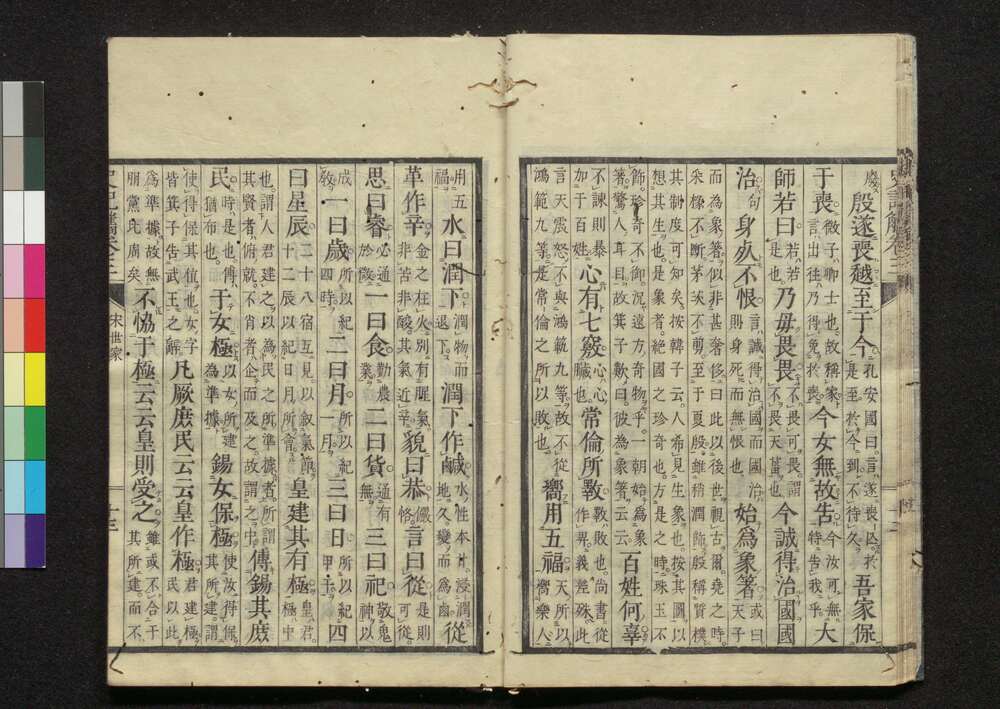 廢 殷遂喪越至于今 孔安國曰言遂喪亡於是至於今到不待久 吾家保
于喪 微子卿士也故稱家言出往乃得免於喪 今女無故告 今汝可無特告我乎 大
師若曰 若若是也 乃毋畏畏 不畏可畏謂不畏天菑也 今誠得治國國
治句 身死不恨 言誠得治國而國治則身死而無恨也 始爲象箸 或曰天子
而為象箸似非甚奢侈曰此以後世視古爾堯之時
采椽不斷茅茨不剪至于夏殷雖稍潤飾殷稱質樸
其制度可知矣按韓子云人希見生象也按其圖以
想其生也是象者絕國之珍奇也方是之時珠玉不
飾珍奇不御況遠方奇物乎一朝始為象箸驚人耳目故箕子歎曰彼為象箸云云 百姓何辜
不諫則暴加于百姓 心有七竅 心心臟也 常倫所斁 斁敗也尚書從作異義差殊此
言天震怒不與鴻範九等故不從鴻範九等是常倫之所以敗也 嚮用五福 天所以嚮樂人
用五福 水曰潤下 潤物而退下 潤下作鹹 水性本片浸潤地久變而為鹵 從
革作辛 金之在火別有腥氣非苦非酸其氣近辛 貌曰恭 儼恪 言曰從 是則可從
思曰睿 必通於微 一曰食 勸農 二曰貨 通有無 三曰祀 敬鬼神以
成教 一曰歲 所以紀四時 二曰月 所以紀一月 三曰日 所以紀甲子 四
曰星辰 二十八宿互見以叙氣節十二辰以紀日月所會 皇建其有極 皇君極中
也謂人君建之以為民之所準據者所謂其賢者俯就不肖者企而及之故謂之中 傅錫其庶
民 時是也傅猶布也 于女極 以女所建為準據 錫女保極 使汝得保其所建謂
使得保其值也女字皆箕子告武王之辭 凡厥庶民云云皇作極 君建極民以此
為準據故無朋黨比廣矣 不恊于極云云皇則受之 雖或不合于其所建而不
宋世家
十三